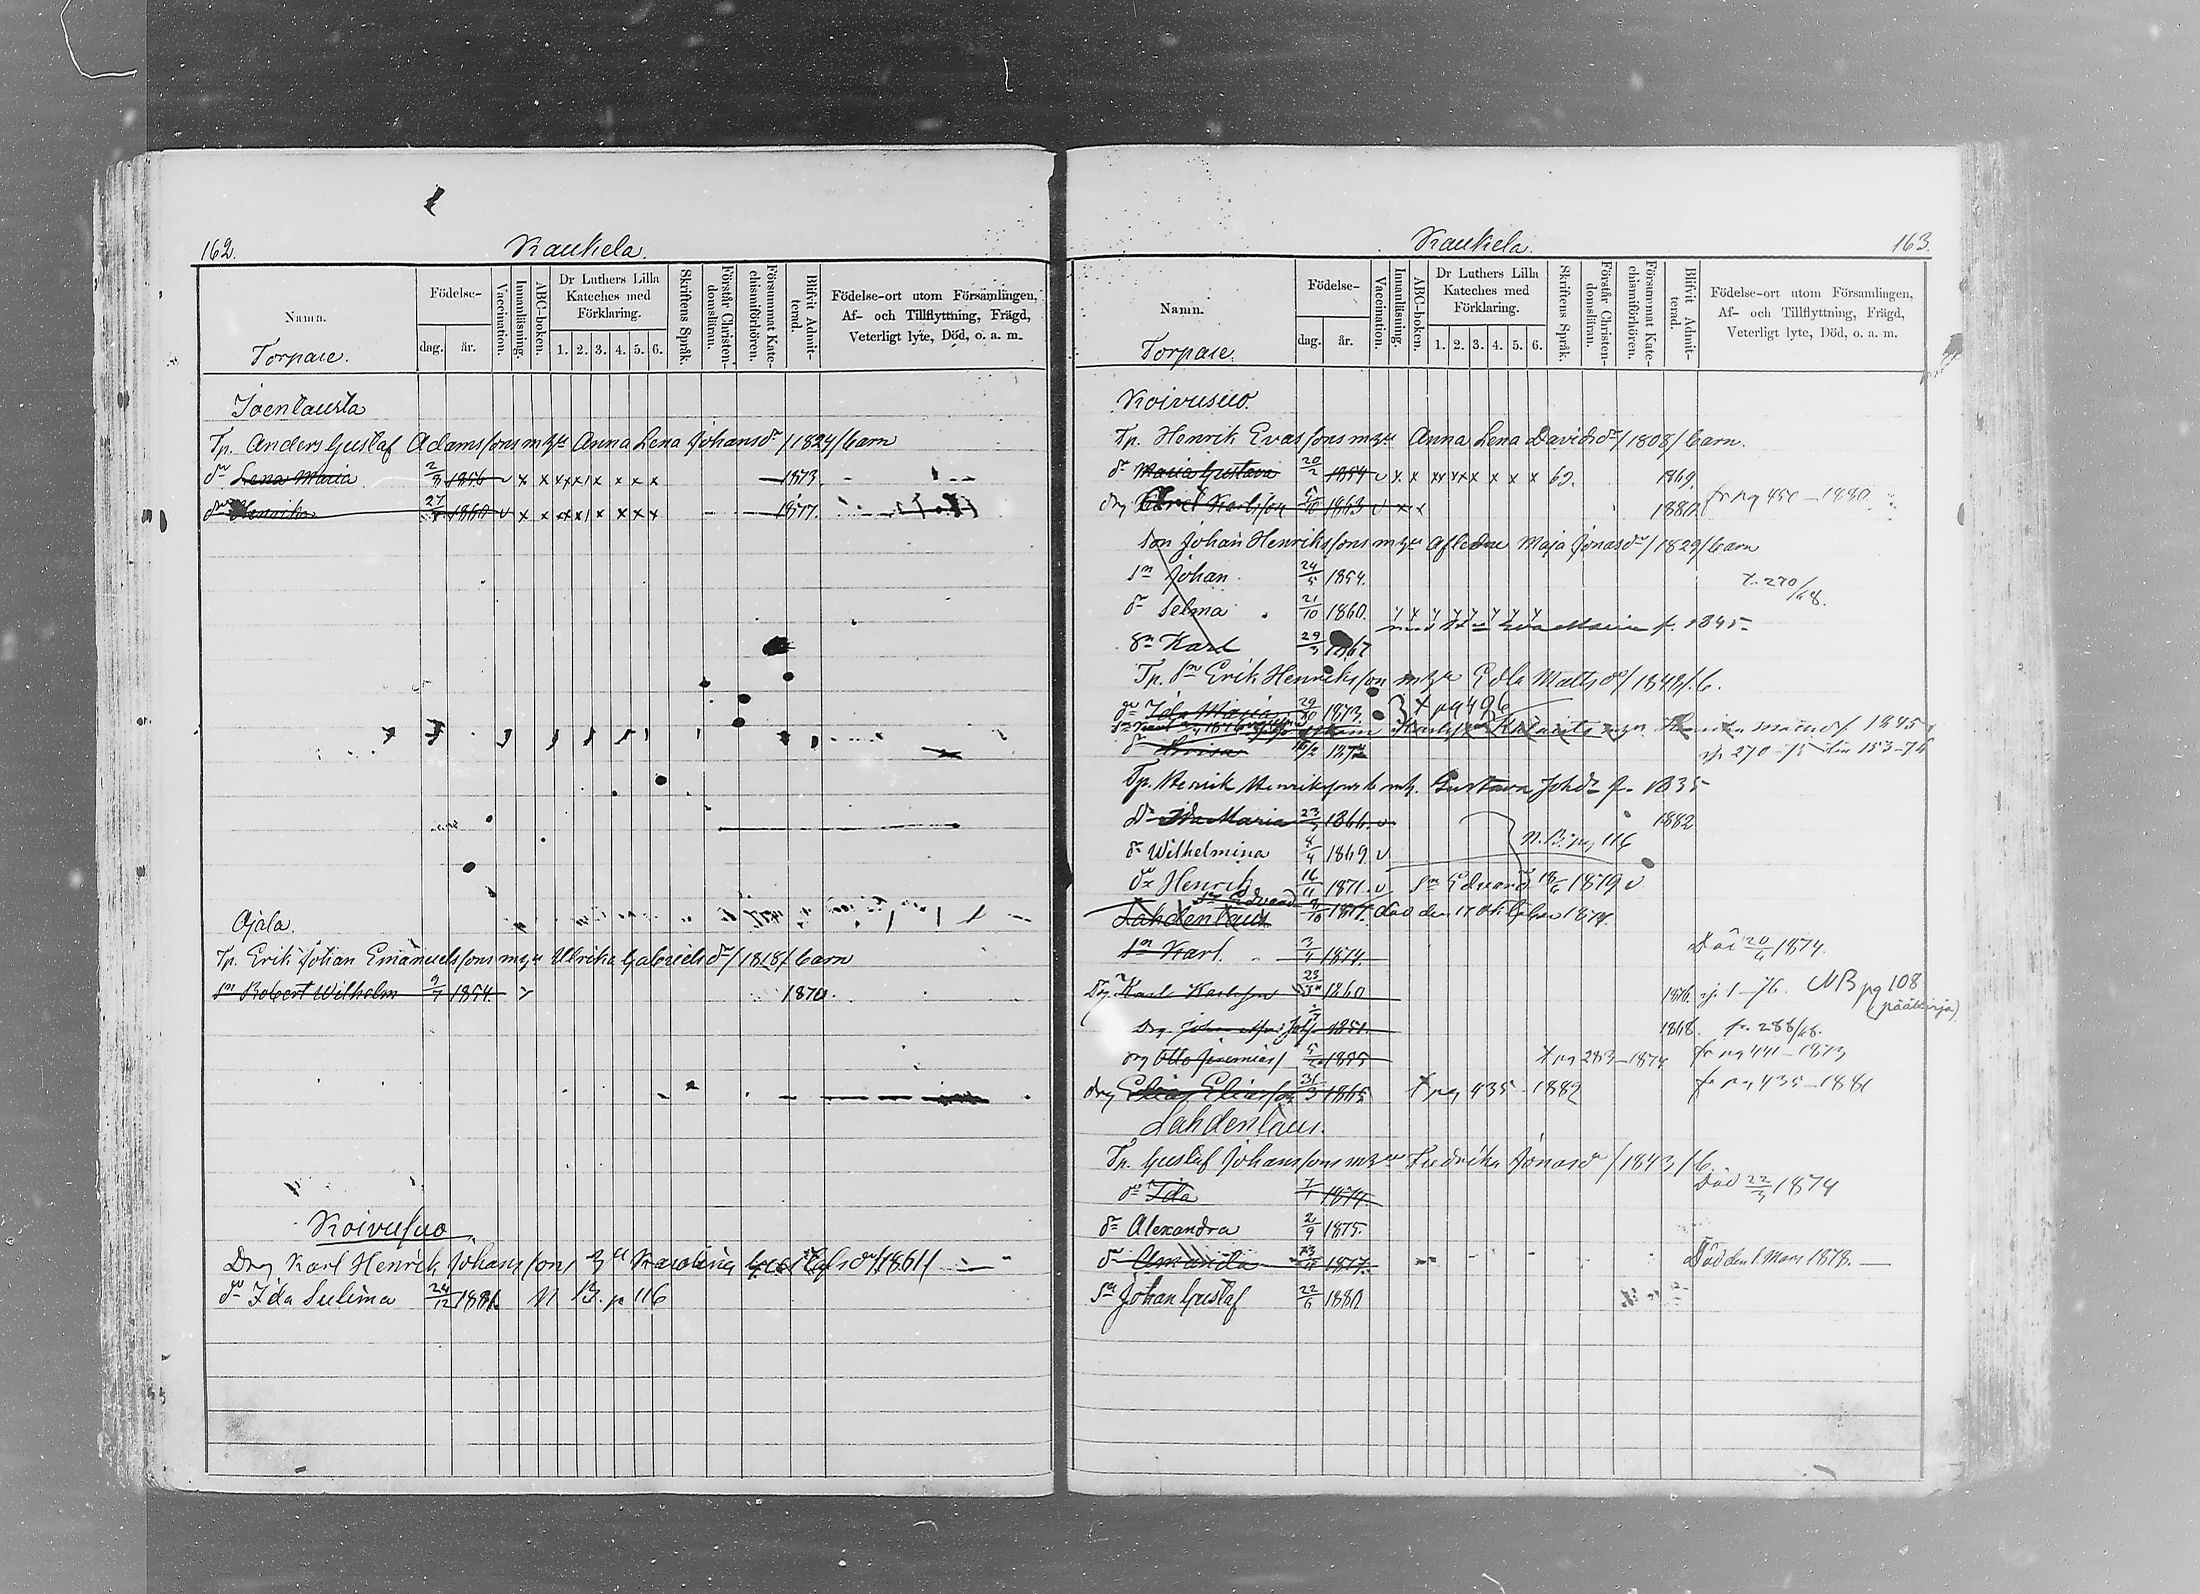 162.
Kaukela.
Namn.
Torpare.
Födelse-
dag.
år.
Vaccination.
Innanläsning.
ABC-boken.
Dr Luthers Lilla
Kateches med
Förklaring.
1. 2. 3. 4. 5. 6.
Skriftens Språk.
Förstår Christen-
domsläran.
Försummat Kate-
chismiförhören.
Blifvit Admit-
terad.
Födelse-ort utom Församlingen,
Af- och Tillflyttning, Frägd,
Veterligt lyte, Död, o. a. m.
Joentausta
Tp. Anders Gustaf Adamssons m hu Anna Lena Johansdr /1824/ barn
dr Lena Maria 2/8 1856 v x x x x x x x x x 1873.
dr Henrika 27/ 1860 v x x x x x x x x 1877.
Ojala.
Tp. Erik Johan Emanuelssons m hu Ulrika Gabrielsdr /1818/ barn
sn Robert Wilhelm 9/7 1854. v 1870.
Koivusuo
Drg Karl Henrik Johansson, hu Karolina Gustafsdr /1861/
dr Ida Sulima 24/12 1881 N B. p 116
163.
Kaukela.
Namn.
Torpare.
Födelse-
dag.
år.
Vaccination.
Innanläsning.
ABC-boken.
Dr Luthers Lilla
Kateches med
Förklaring.
1. 2. 3. 4. 5. 6.
Skriftens Språk.
Förstår Christen-
domsläran.
Försummat Kate-
chismiförhören.
Blifvit Admit-
terad.
Födelse-ort utom Församlingen,
Af- och Tillflyttning, Frägd,
Veterligt lyte, Död, o. a. m.
Koivusuo.
Tp. Henrik Evassons m hu Anna Lena Davidsdr /1808/ barn.
dr Maria Gustava 20/2 1854 v x x x x x x x x x 69. 1869.
drg Karlsson 1863 v x x 1880. fr pg 450 - 1880.
Son Johan Henrikssons m hu Afledne Maja Jonasdr /1829/ barn
sn Johan 24/5 1854. t. 270/68.
dr Selma 21/10 1860. y x y y y y y y
sn Karl 29/3 1867 Eva Maria f. 1845.
Tp. sn Erik Henriksson m hu Edla Mattsdr /1843/ b.
dr Ida Maria 29/10 1873. t pg 496
1845
270-75 153-76
Tp. Henrik Henrikssons m h. Gustava Johdr f. 1835
dr Ida Maria 23/ 1866. v 1882
dr Wilhelmina 8/4 1869. v N. B. pg 116
Henrik 16/11 1871. v sn Edvard 18/ 1879 v
sn Edvard /10 1877. död den 17 Oktober 1878.
Lahdentaus
sn Karl. 3/4 1874. Död 20/4 1874.
Drg Karl Karlsson 23/ 1860 1876. 1-76. NB pg 108
(pääkirja)
Drg 1851. 1868. fr. 288/68.
drg Otto Jeremias 5/ 1855 t pg 283-1874 fr pg 441-1873
drg Elias Eliasson 31/3 1865 t pg 435-1882 fr pg 435-1881
Lahdentaus.
Tp. Gustaf Johanssons m hu Fredrika Jonasdr /1843/ b.
dr Ida 7/1 1874. Död 22/4 1874
dr Alexandra 2/9 1875.
dr Amanda 1877. Död den 1. Mars 1878.
sn Johan Gustaf 22/6 1880